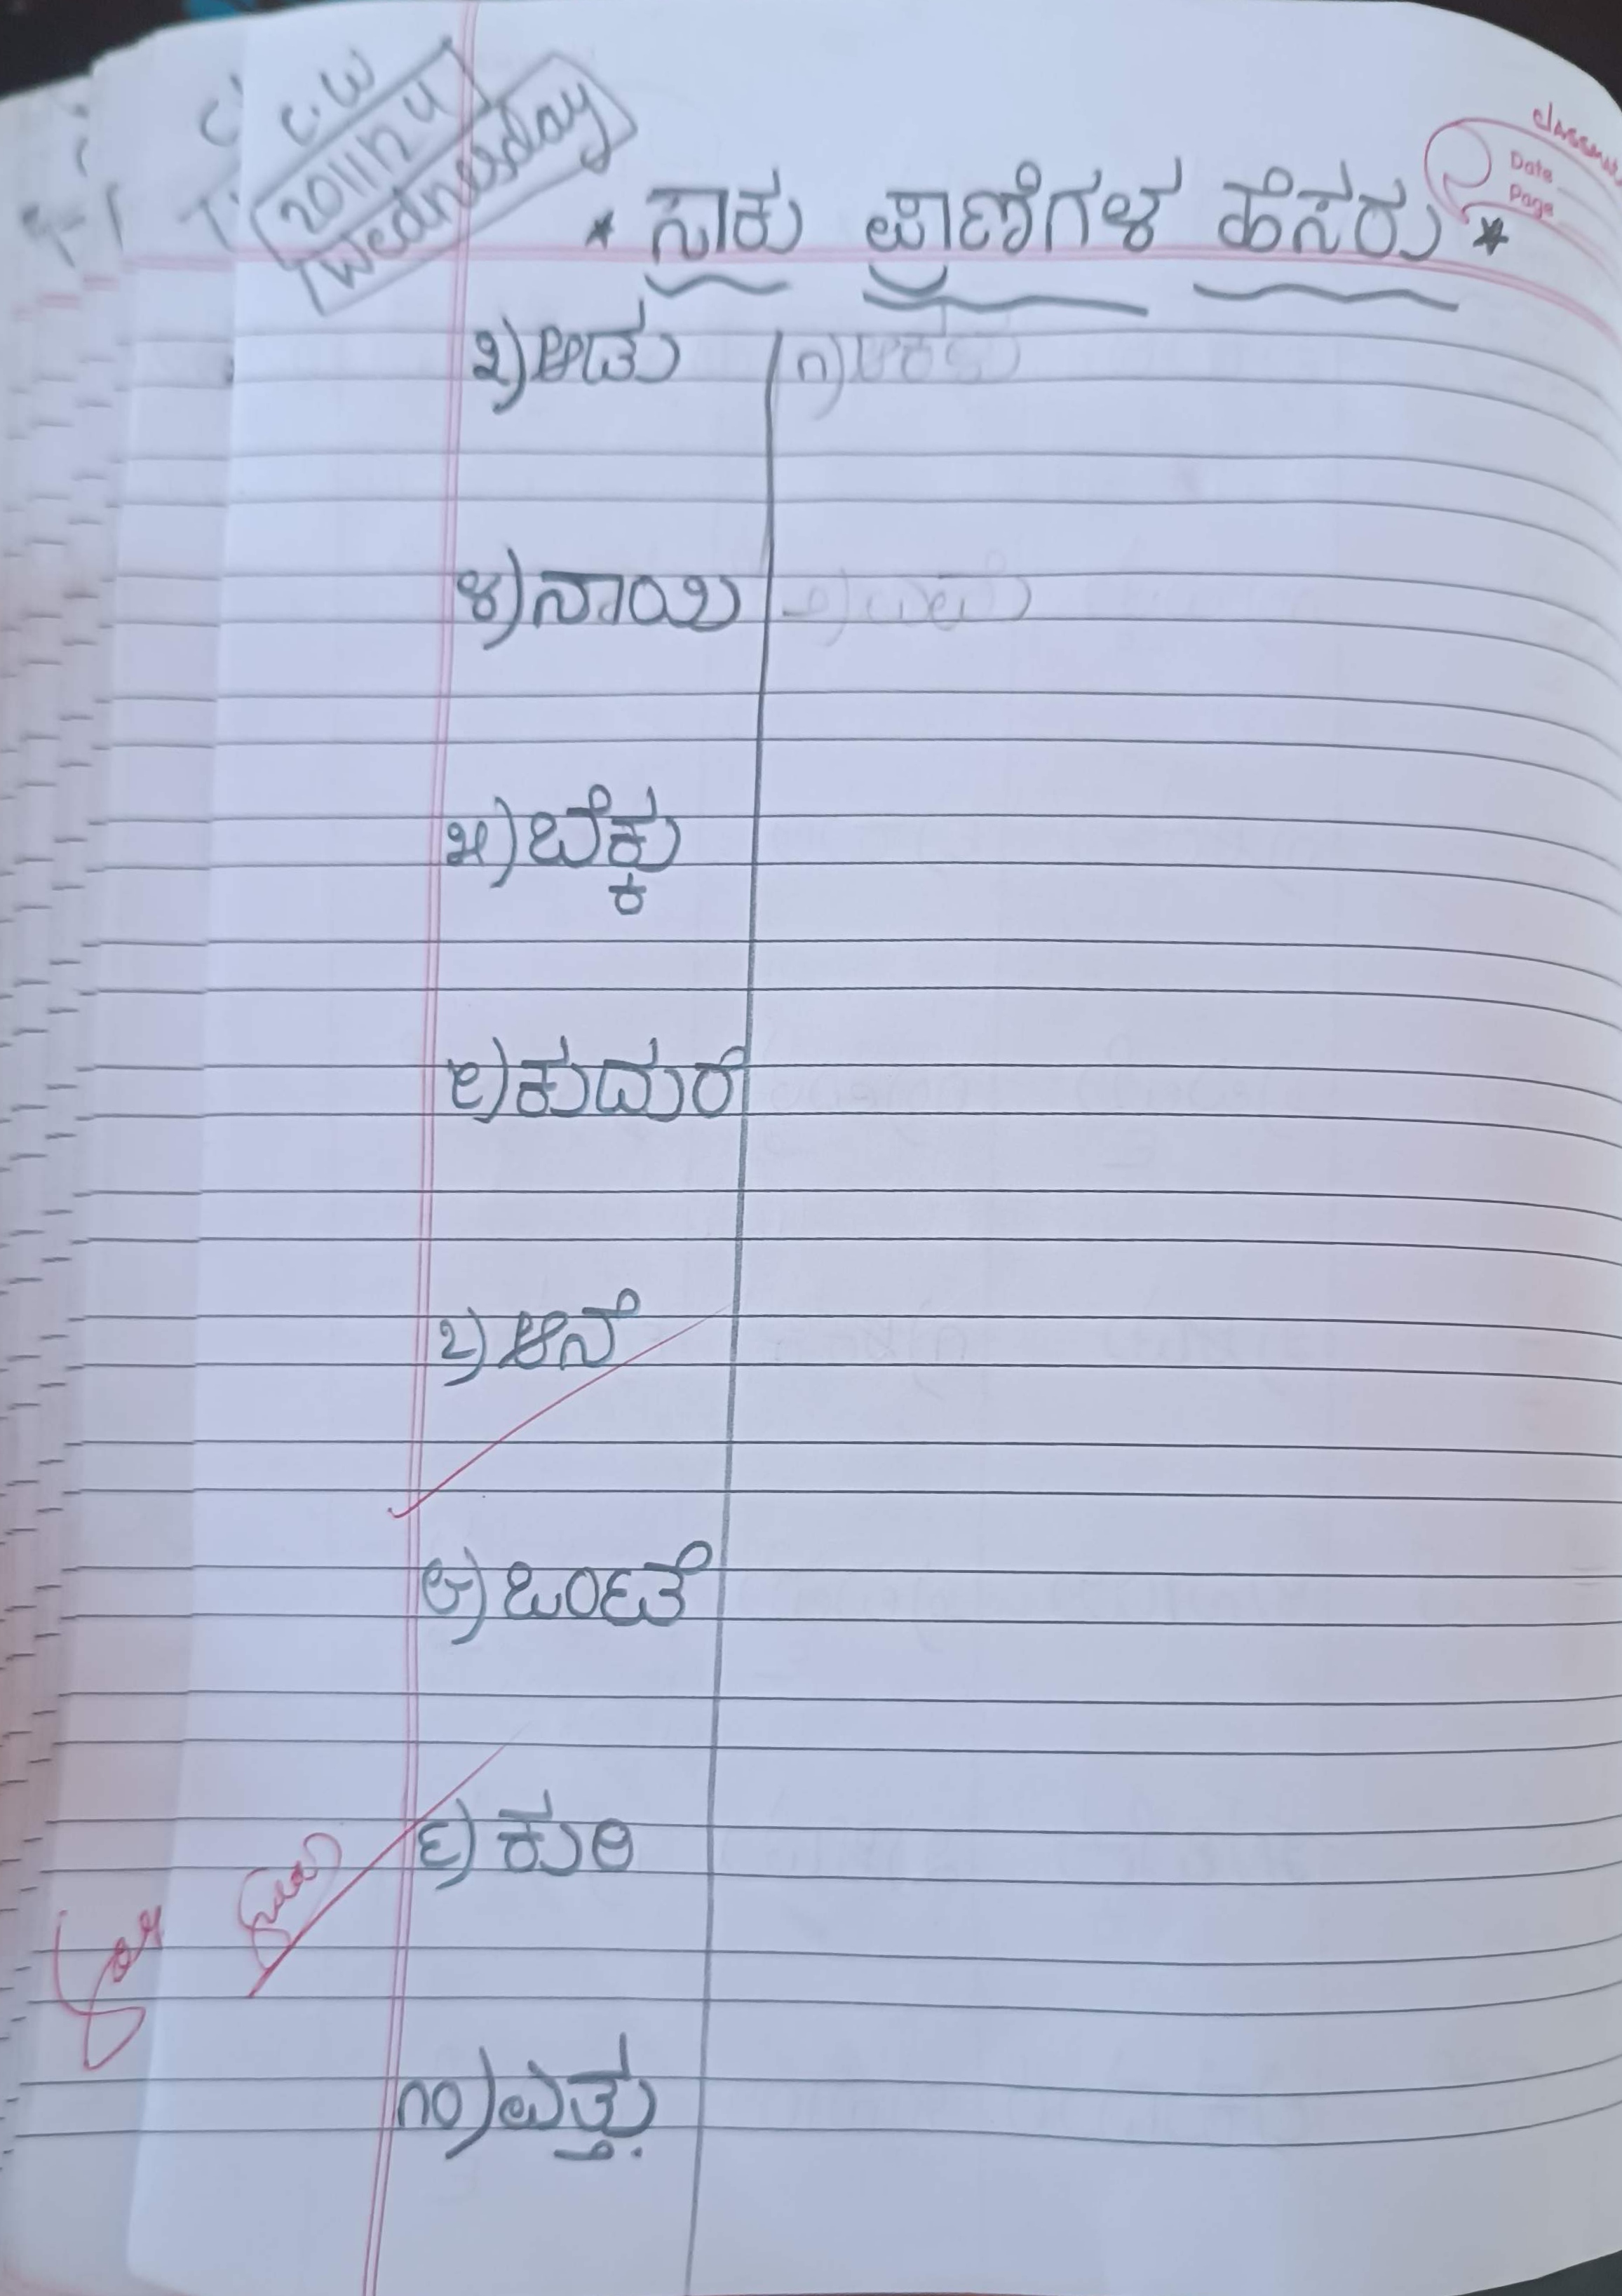 C.W
20/11/24
Wednesday
classmate
Date
Page
* ಸಾಕು ಪ್ರಾಣಿಗಳ ಹೆಸರು *
೩) ಆಡು
೪) ನಾಯಿ
೫) ಬೆಕ್ಕು
೯) ಕುದುರೆ
೭) ಆನೆ
೮) ಒಂಟೆ
೬) ಕುರಿ
೧೦) ಎತ್ತು.